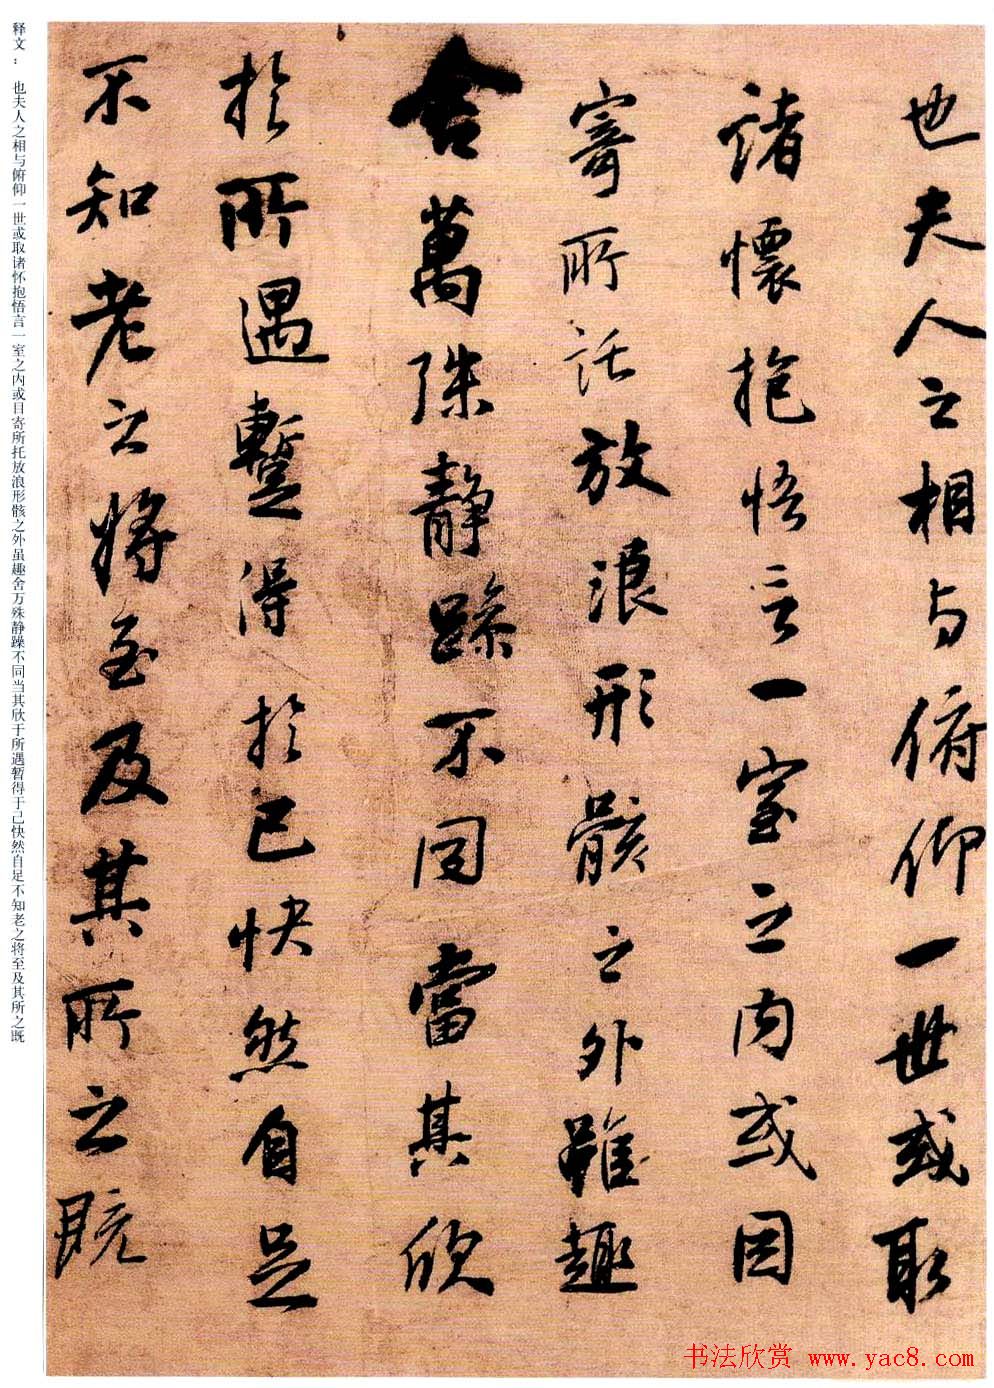 也夫人之相与俯仰一世或取
诸懷抱悟言一室之内或因
寄所託放浪形骸之外雖趣
舍萬殊静躁不同當其欣
於所遇蹔得於己快然自足
不知老之將至及其所之既
释文： 也夫人之相与俯仰一世或取诸怀抱悟言一室之内或目寄所托放浪形骸之外虽趣舍万殊静躁不同当其欣于所遇暂得于己快然自足不知老之将至及其所之既
书法欣赏 www.yac8.com